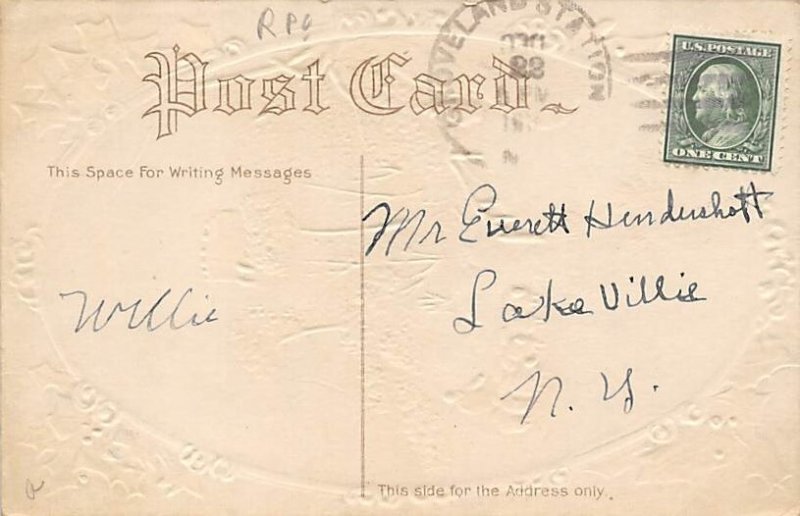 R P O
GROVELAND STATION
DEC
U.S. POSTAGE
ONE CENT
Post Card
This Space For Writing Messages
Mr Everett Hendershott
Lake Villie
N. Y.
Willie
This side for the Address only.